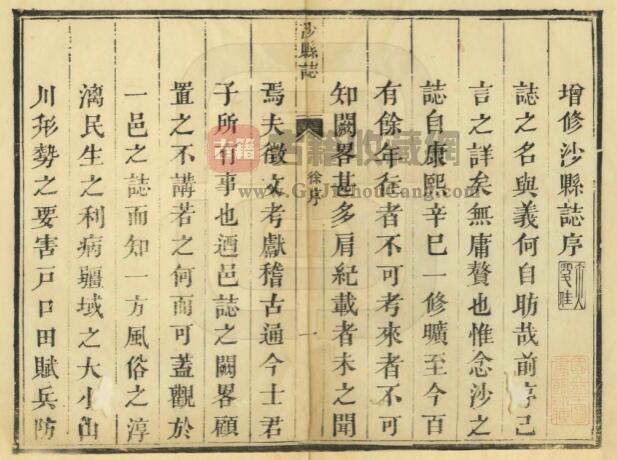 增修沙縣誌序
誌之名與義何自昉哉前序已
言之詳矣無庸贅也惟念沙之
誌自康熙辛巳一修曠至今百
有餘年往者不可考來者不可
知闕畧甚多肩紀載者未之聞
沙縣誌
徐序
一
焉夫徵文考獻稽古通今士君
子所有事也迺邑誌之闕畧顧
置之不講若之何而可蓋觀於
一邑之誌而知一方風俗之淳
漓民生之利病疆域之大小山
川形勢之要害戶口田賦兵防
古籍
古籍收藏網
www.GuJiShouCang.com